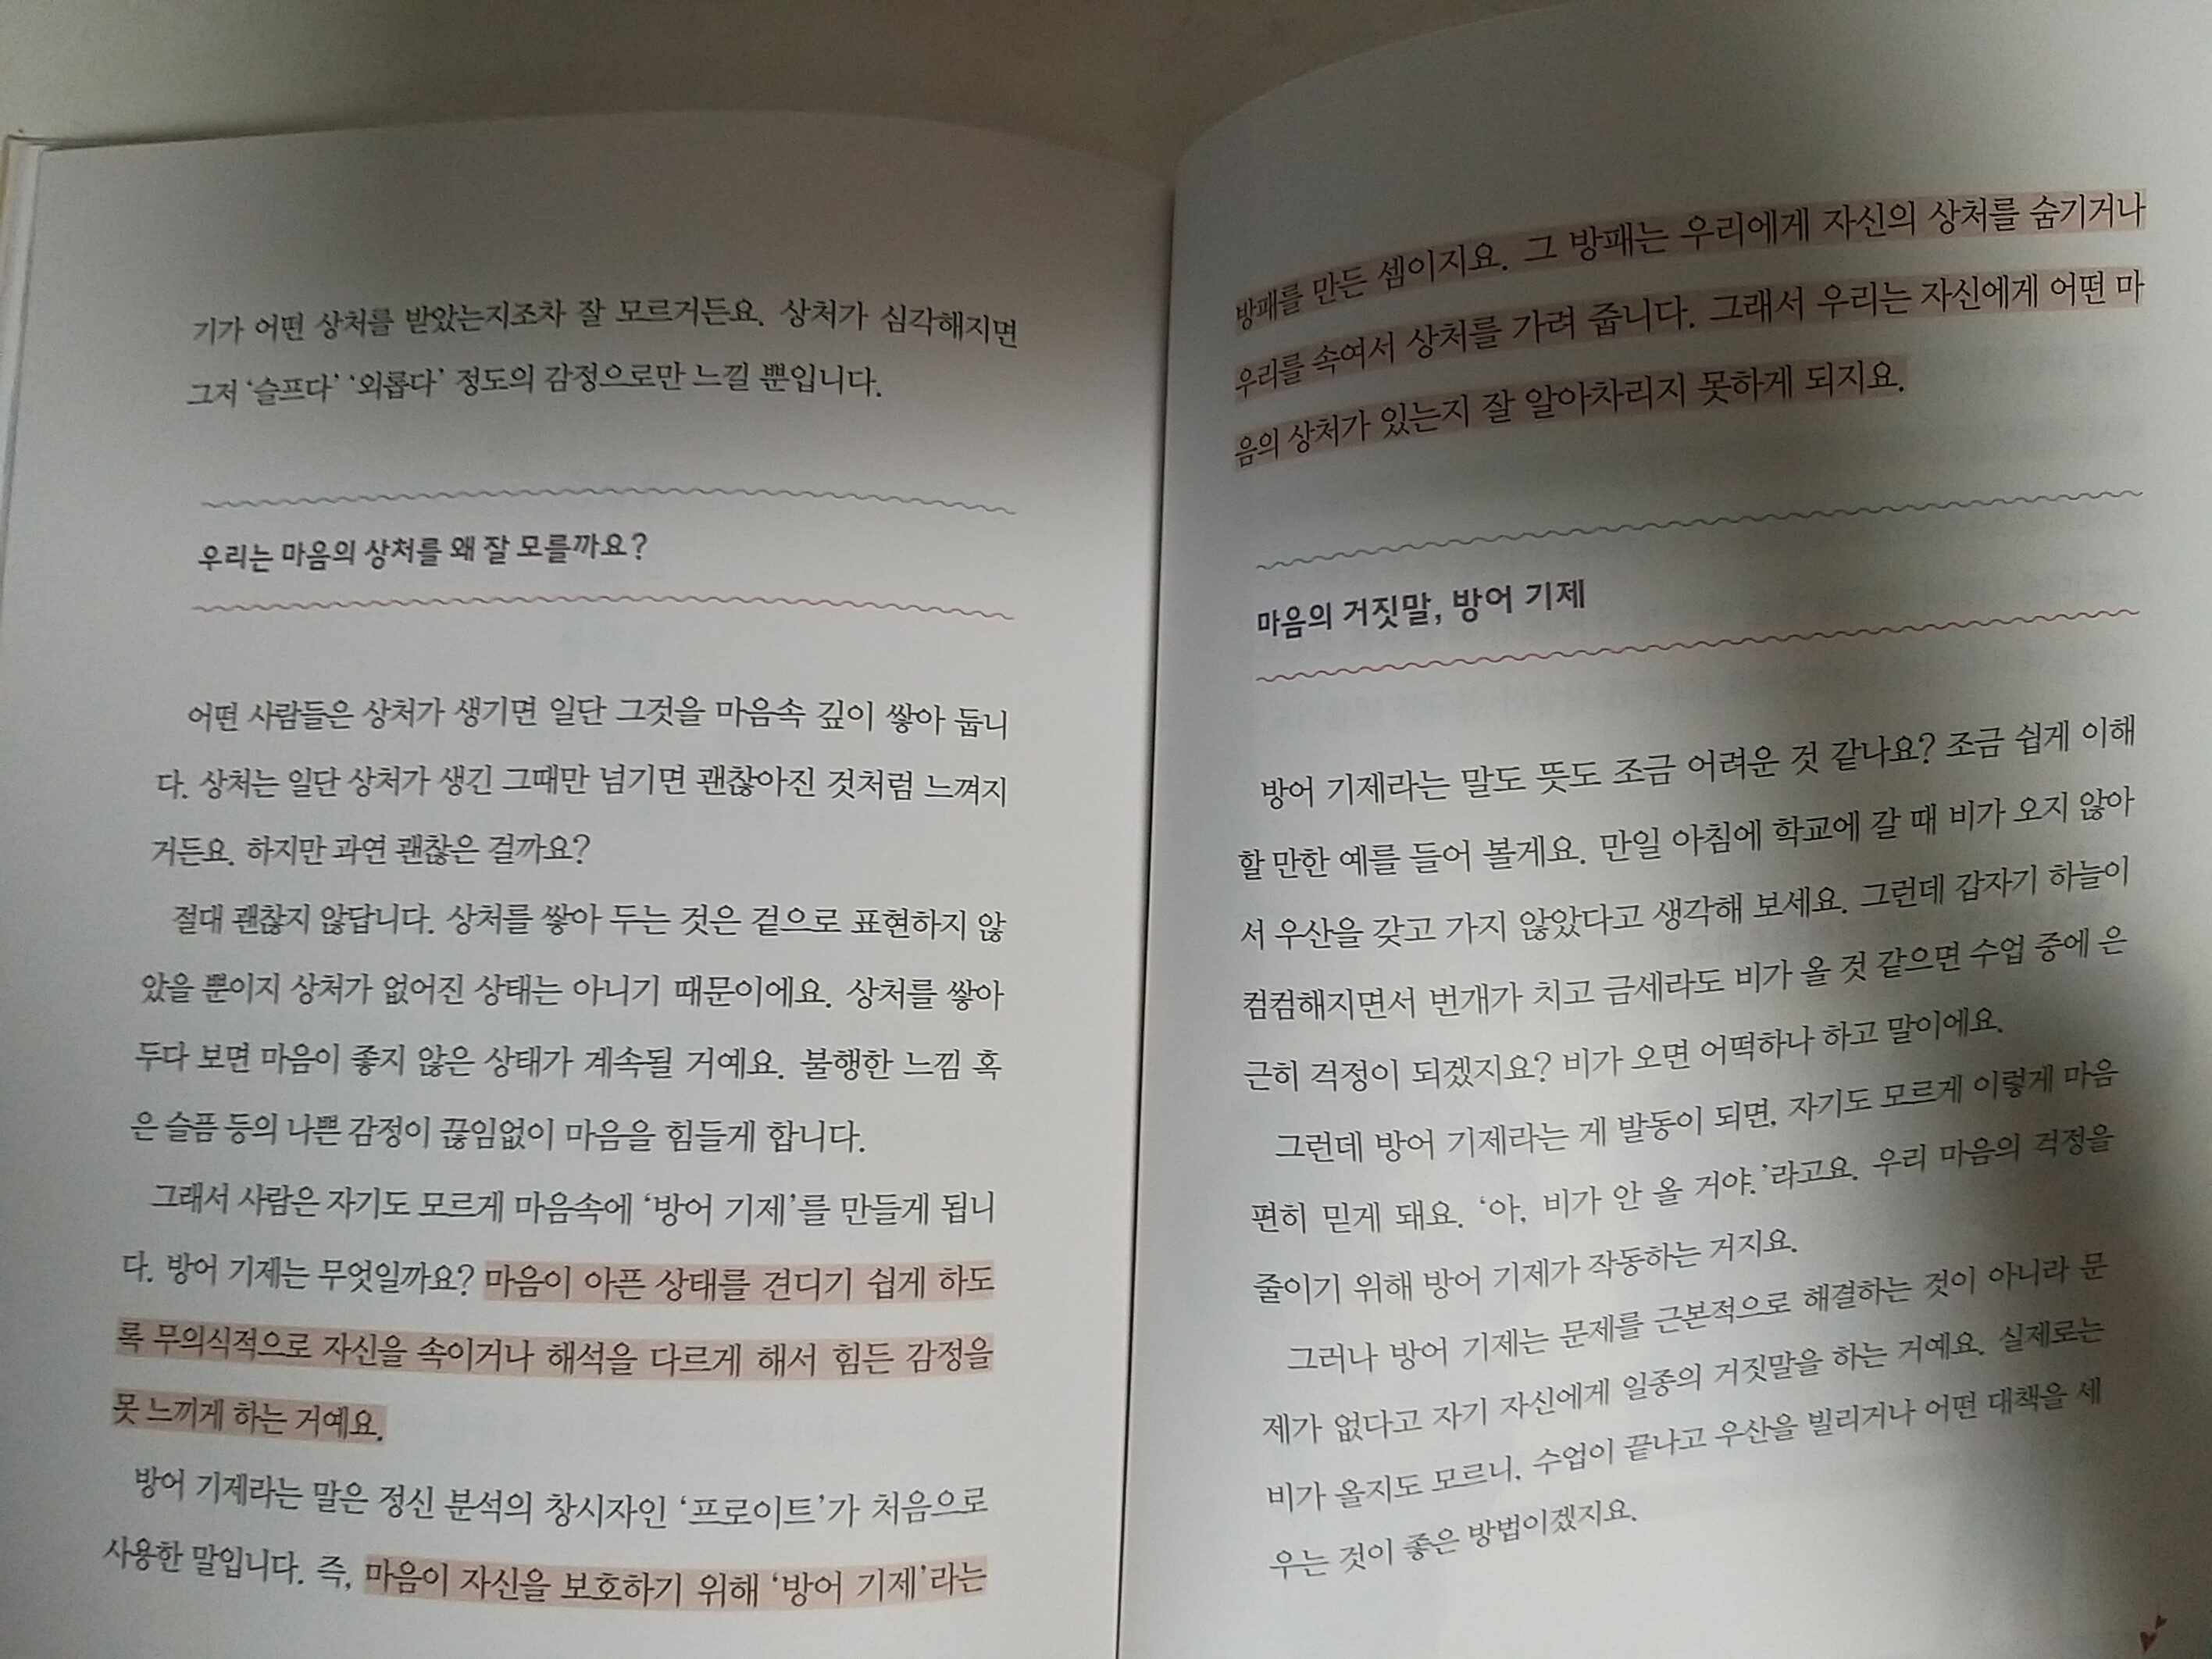 기가 어떤 상처를 받았는지조차 잘 모르거든요. 상처가 심각해지면
그저 ‘슬프다’ ‘외롭다’ 정도의 감정으로만 느낄 뿐입니다.
우리는 마음의 상처를 왜 잘 모를까요?
어떤 사람들은 상처가 생기면 일단 그것을 마음속 깊이 쌓아 둡니
다. 상처는 일단 상처가 생긴 그때만 넘기면 괜찮아진 것처럼 느껴지
거든요. 하지만 과연 괜찮은 걸까요?
절대 괜찮지 않답니다. 상처를 쌓아 두는 것은 겉으로 표현하지 않
았을 뿐이지 상처가 없어진 상태는 아니기 때문이에요. 상처를 쌓아
두다 보면 마음이 좋지 않은 상태가 계속될 거예요. 불행한 느낌 혹
은 슬픔 등의 나쁜 감정이 끊임없이 마음을 힘들게 합니다.
그래서 사람은 자기도 모르게 마음속에 ‘방어 기제’를 만들게 됩니
다. 방어 기제는 무엇일까요? 마음이 아픈 상태를 견디기 쉽게 하도
록 무의식적으로 자신을 속이거나 해석을 다르게 해서 힘든 감정을
못 느끼게 하는 거예요.
방어 기제라는 말은 정신 분석의 창시자인 ‘프로이트’가 처음으로
사용한 말입니다. 즉, 마음이 자신을 보호하기 위해 ‘방어 기제’라는
방패를 만든 셈이지요. 그 방패는 우리에게 자신의 상처를 숨기거나
우리를 속여서 상처를 가려 줍니다. 그래서 우리는 자신에게 어떤 마
음의 상처가 있는지 잘 알아차리지 못하게 되지요.
마음의 거짓말, 방어 기제
방어 기제라는 말도 뜻도 조금 어려운 것 같나요? 조금 쉽게 이해
할 만한 예를 들어 볼게요. 만일 아침에 학교에 갈 때 비가 오지 않아
서 우산을 갖고 가지 않았다고 생각해 보세요. 그런데 갑자기 하늘이
컴컴해지면서 번개가 치고 금세라도 비가 올 것 같으면 수업 중에 은
근히 걱정이 되겠지요? 비가 오면 어떡하나 하고 말이에요.
그런데 방어 기제라는 게 발동이 되면, 자기도 모르게 이렇게 마음
편히 믿게 돼요. ‘아, 비가 안 올 거야.’라고요. 우리 마음의 걱정을
줄이기 위해 방어 기제가 작동하는 거지요.
그러나 방어 기제는 문제를 근본적으로 해결하는 것이 아니라 문
제가 없다고 자기 자신에게 일종의 거짓말을 하는 거예요. 실제로는
비가 올지도 모르니, 수업이 끝나고 우산을 빌리거나 어떤 대책을 세
우는 것이 좋은 방법이겠지요.